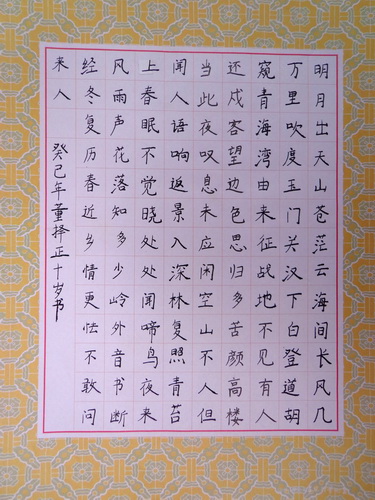 明月出天山苍茫云海间长风几
万里吹度玉门关汉下白登道胡
窥青海湾由来征战地不见有人
还戍客望边色思归多苦颜高楼
当此夜叹息未应闲空山不人但
闻人语响返景入深林复照青苔
上春眠不觉晓处处闻啼鸟夜来
风雨声花落知多少岭外音书断
经冬复历春近乡情更怯不敢问
来人
癸己年董择正十岁书